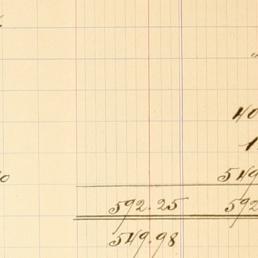 40
1
549
592.25 592
549.98